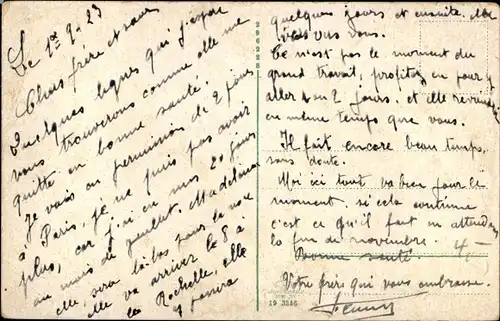 Le 1er 9-23
Chers frère et sœur
Quelques lignes qui j'espère
vous trouverons comme elle me
quitte en bonne santé.
Je vais en permission de 2 jours
à Paris, je ne puis pas avoir
plus, car j'ai eu mes 20 jours
au mois de juillet. Madeleine
elle, sera là-bas pour de
elle va arriver le 8 à
la Rochelle, elle
y passera
quelques jours et ensuite
vous.
Ce n'est pas le moment du
grand travail, profitez en pour y
aller 1 ou 2 jours. et elle
en même temps que vous.
Il fait encore beau temps,
sans doute.
Moi ici tout va bien pour le
moment, si cela continue
c'est ce qu'il faut en attendant
la fin de novembre.
Bonne santé
Votre frère qui vous embrasse.
19 3246